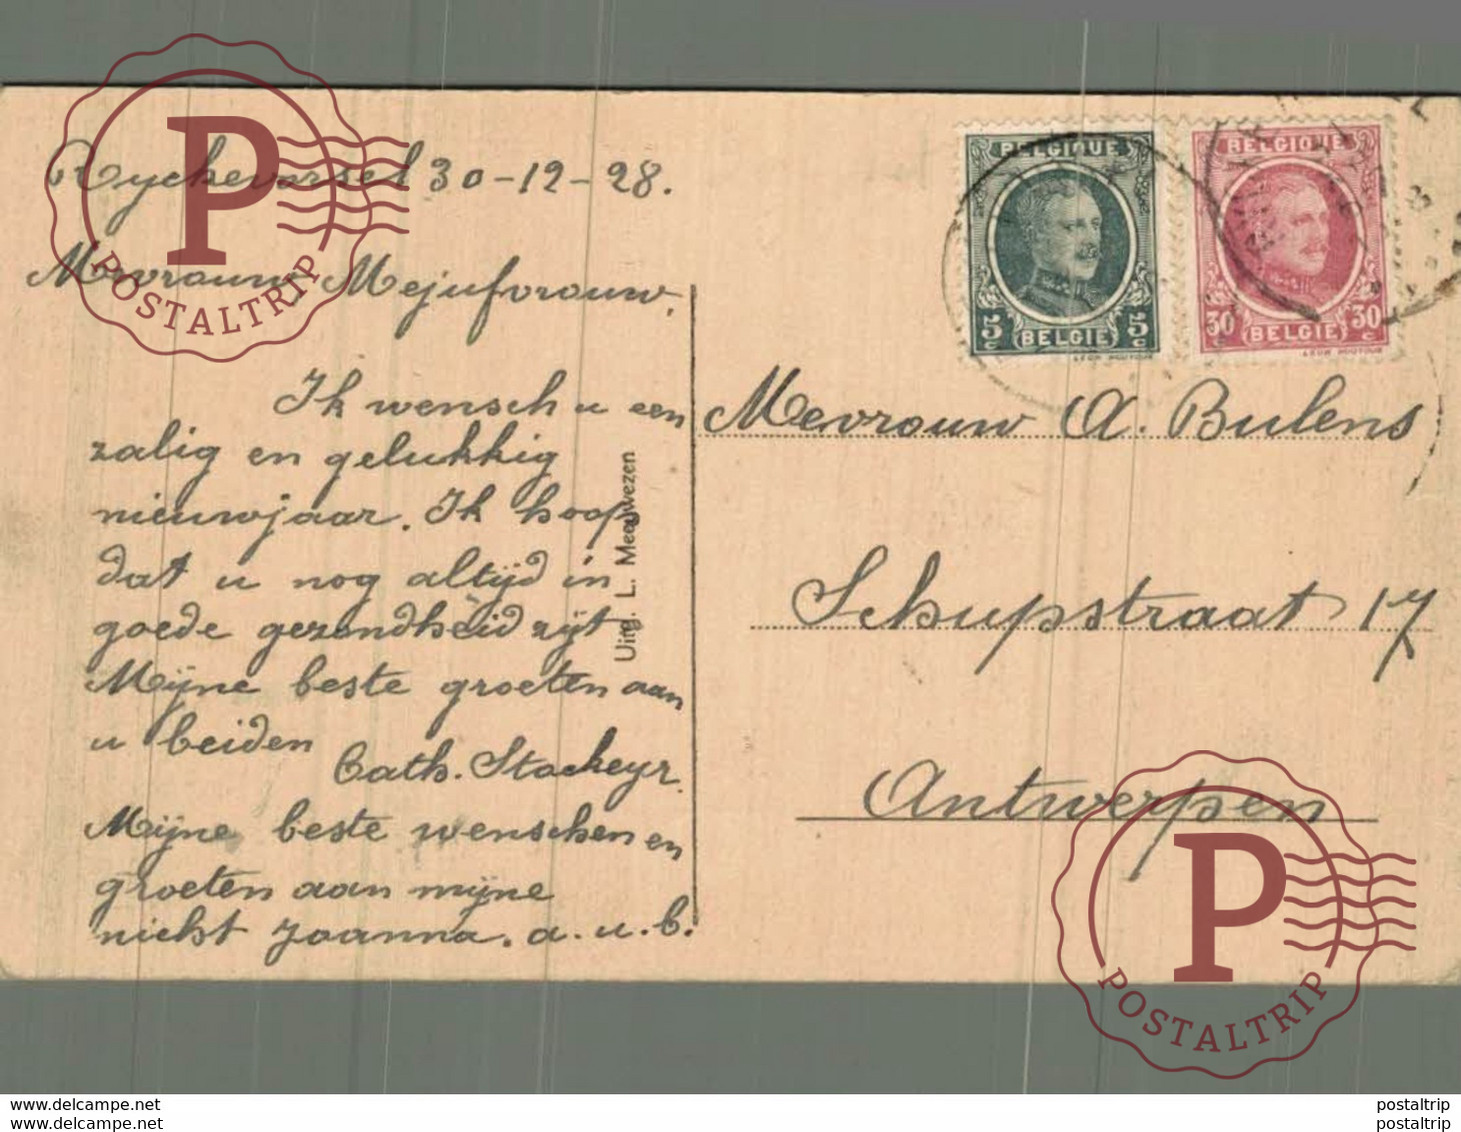 Ryckevorsel 30-12-28.
Mevrouw, Mejufvrouw.
Ik wensch u een
zalig en gelukkig
nieuwjaar. Ik hoop
dat u nog altijd in
goede gezondheid zijt
Mijne beste groeten aan
u beiden
Cath. Stockeyr.
Mijne beste wenschen en
groeten aan mijne
nicht Joanna. a.u.b.
Uitg. L. Meeuwezen
BELGIQUE
5c BELGIE 5c
BELGIQUE
30c BELGIE 30c
Mevrouw A. Bulens
Schupstraat 17
Antwerpen
P
POSTALTRIP
P
POSTALTRIP
www.delcampe.net
www.delcampe.net
postaltrip
postaltrip